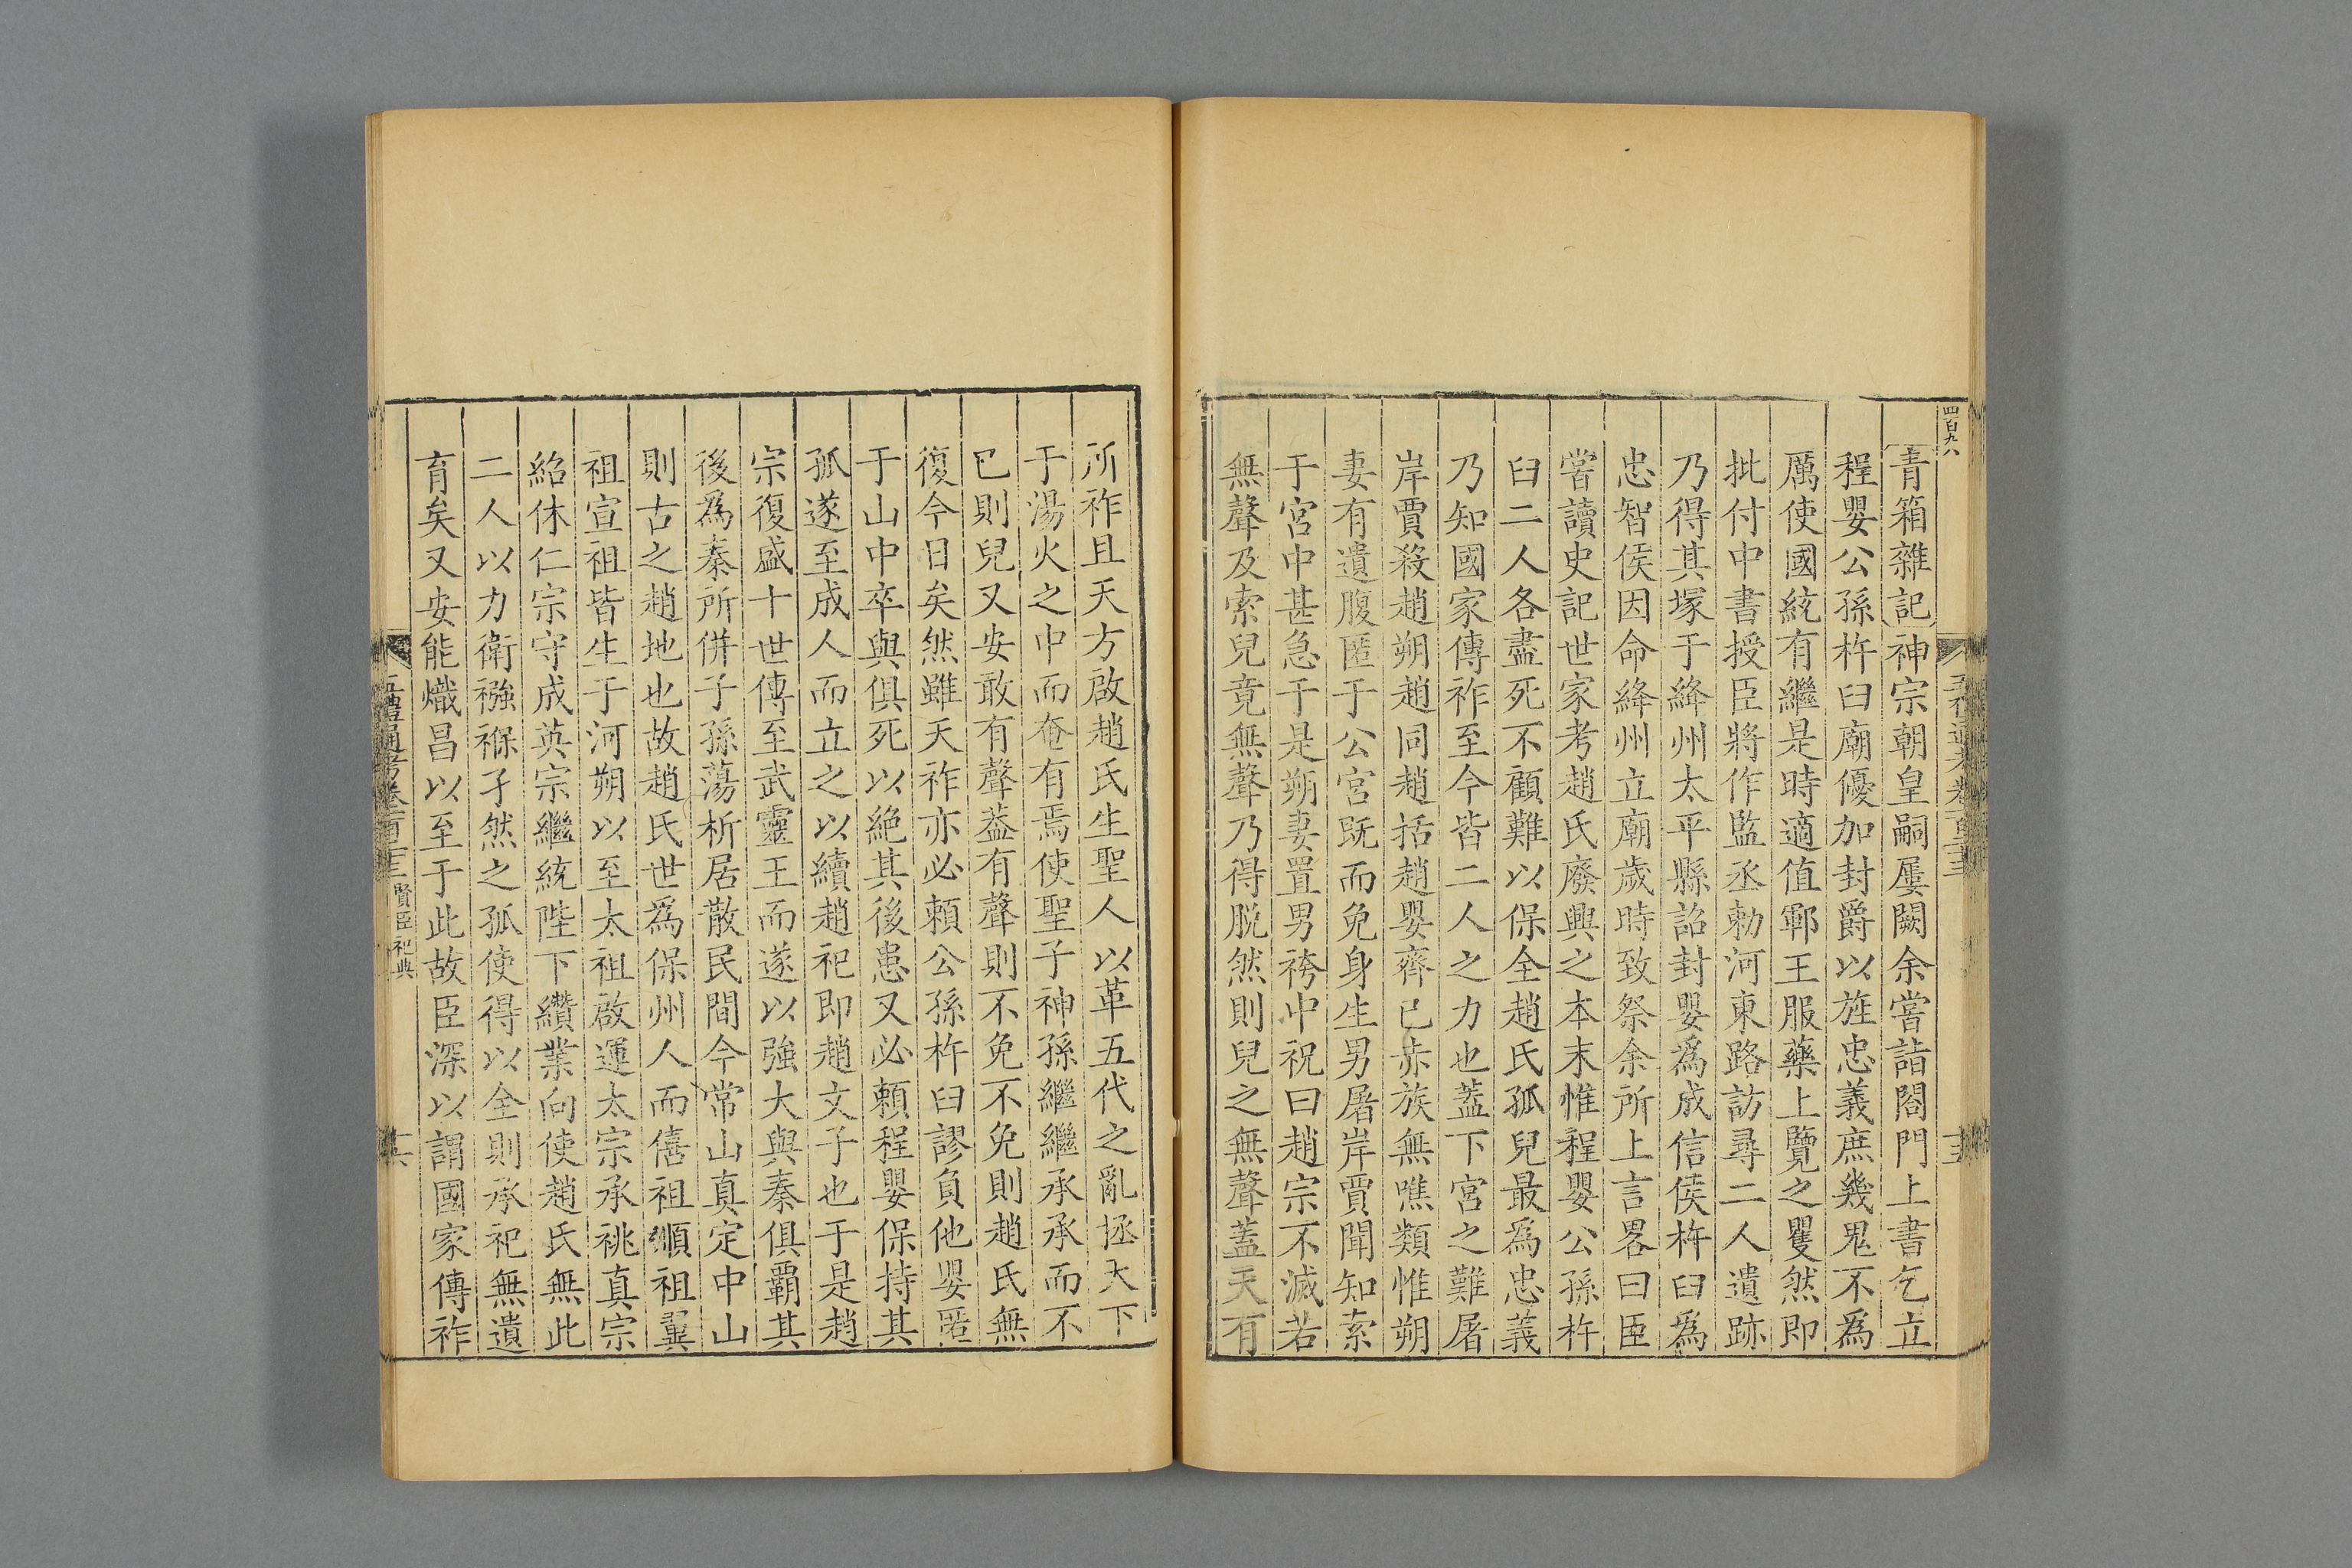 四百九八
青箱雜記神宗朝皇嗣屢闕余嘗詣閤門上書乞立
程嬰公孫杵臼廟優加封爵以旌忠義庶幾鬼不為
厲使國統有繼是時適值鄆王服藥上覽之矍然即
批付中書授臣將作監丞勅河東路訪尋二人遺跡
乃得其塚于絳州太平縣詔封嬰爲成信侯杵臼爲
忠智侯因命絳州立廟歲時致祭余所上言畧曰臣
嘗讀史記世家考趙氏廢興之本末惟程嬰公孫杵
臼二人各盡死不顧難以保全趙氏孤兒最爲忠義
乃知國家傳祚至今皆二人之力也蓋下宮之難屠
岸賈殺趙朔趙同趙括趙嬰齊已赤族無噍類惟朔
妻有遺腹匿于公宮既而免身生男屠岸賈聞知索
于宮中甚急于是朔妻置男袴中祝曰趙宗不滅若
無聲及索兒竟無聲乃得脫然則兒之無聲蓋天有
所祚且天方啟趙氏生聖人以革五代之亂拯天下
于湯火之中而奄有焉使聖子神孫繼繼承承而不
已則兒又安敢有聲葢有聲則不免不免則趙氏無
復今日矣然雖天祚亦必賴公孫杵臼謬負他嬰匿
于山中卒與俱死以絕其後患又必賴程嬰保持其
孤遂至成人而立之以續趙祀即趙文子也于是趙
宗復盛十世傳至武靈王而遂以強大與秦俱霸其
後爲秦所併子孫蕩析居散民間今常山真定中山
則古之趙地也故趙氏世爲保州人而僖祖順祖翼
祖宣祖皆生于河朔以至太祖啟運太宗承祧真宗
紹休仁宗守成英宗繼統陛下纘業向使趙氏無此
二人以力衛襁褓孑然之孤使得以全則承祀無遺
育矣又安能熾昌以至于此故臣深以謂國家傳祚
五禮通考卷一百二十三 賢臣祀典